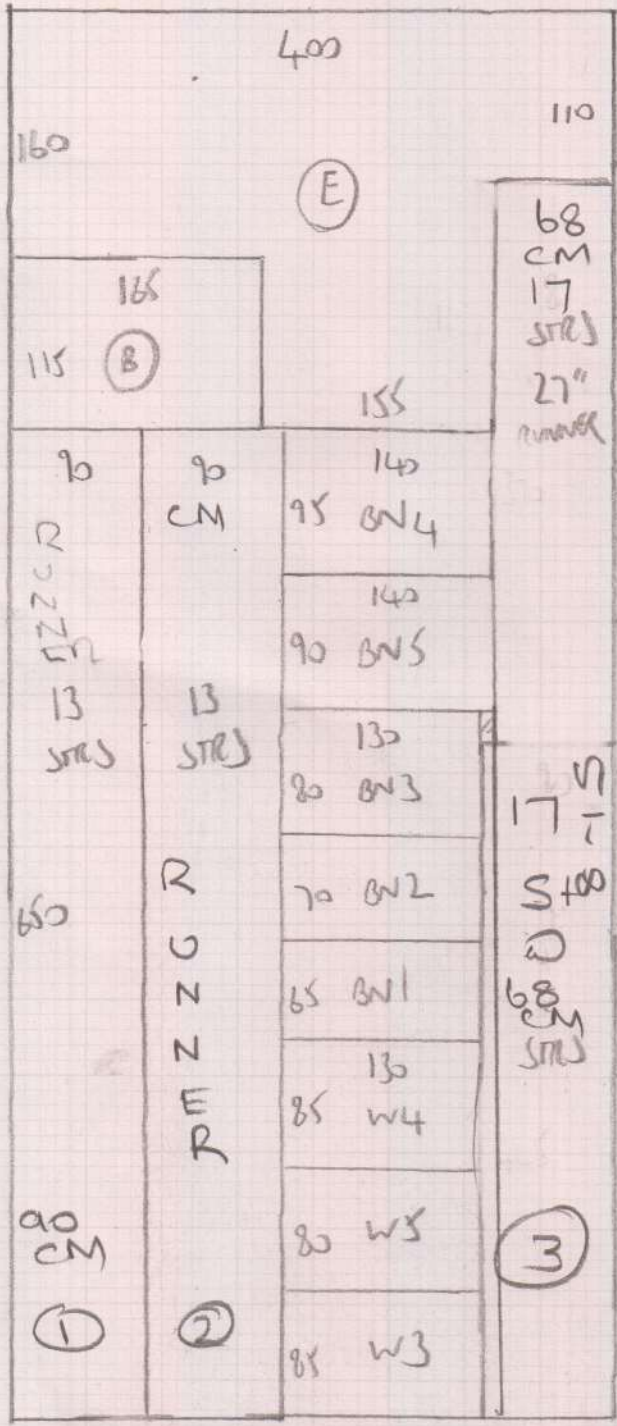 400
110
160
E
68
CM
17
STRS
27"
RUNNER
165
115 B
155
90
RUNNER
13
STRS
650
90
CM
1
90
CM
13
STRS
RUNNER
2
140
95 BN4
140
90 BN5
130
80 BN3
70 BN2
65 BN1
130
85 W4
80 W5
85 W3
17
68
CM
STRS
3